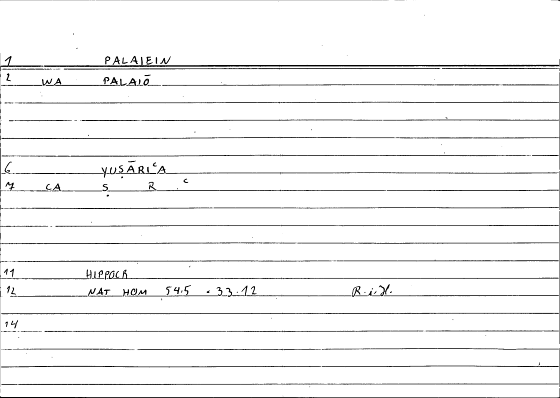 1 PALAIEIN
2 WA PALAIŌ
6 YUṢĀRIʿA
7 CA Ṣ R ʿ
11 HIPPOCR
12 NAT HOM 545 . 33.12 R.i.H.
14